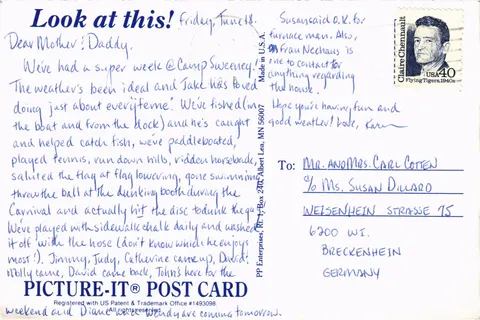 Look at this! Friday, June 18.
Dear Mother & Daddy,
We've had a super week @ Camp Sweeney.
The weather's been ideal and Jake has loved
doing just about everytime. We've fished (in
the boat and from the dock) and he's caught
and helped catch fish, we've paddleboated,
played tennis, run down hills, ridden horseback,
saluted the flag at flag lowering, gone swimming,
threw the ball at the dunking booth during the
Carnival and actually hit the disc to dunk the guy.
We've played with sidewalk chalk daily and washed
it off with the hose (don't know which he enjoys
most!). Jimmy, Judy, Catherine came up, David,
Molly came, David came back, John's here for the
PICTURE-IT® POST CARD
Registered with US Patent & Trademark Office #1493098
All rights reserved
weekend and Diane and Wendy are coming tomorrow.
Made in U.S.A.
PP Enterprises, Rt. 1, Box 240, Albert Lea, MN 56007
Susan said O.K. for
furnace man. Also,
Fran Neehaus is
one to contact for
anything regarding
the house.
Hope you're having fun and
good weather! Love, Karen
Claire Chennault
USA 40
Flying Tigers, 1940s
To: MR. AND MRS. CARL COTTEN
c/o MS. SUSAN DILLARD
WEISENHEIN STRASSE 75
6200 WI.
BRECKENHEIN
GERMANY